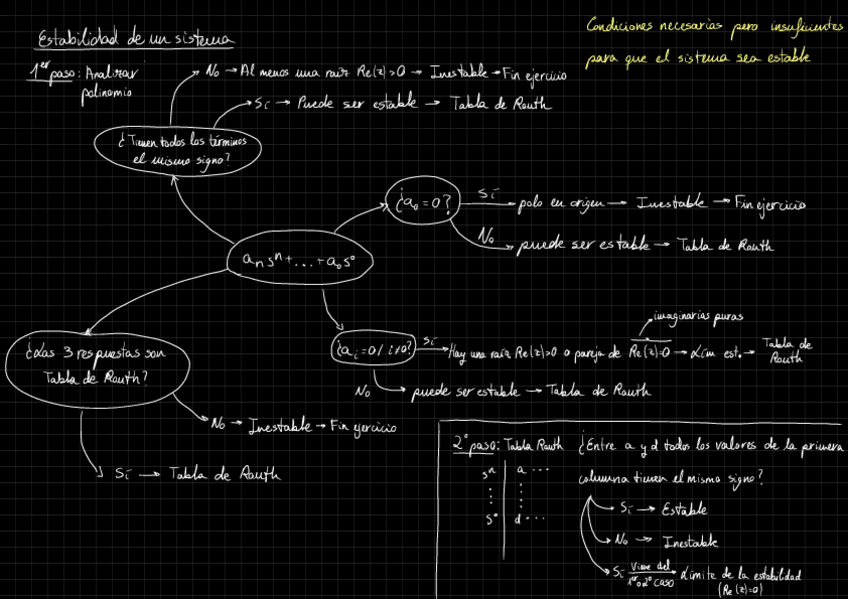 Estabilidad de un sistema
Condiciones necesarias pero insuficientes
para que el sistema sea estable
1er paso: Analizar
polinomio
No → Al menos una raíz Re(z)>0 → Inestable → Fin ejercicio
Sí → Puede ser estable → Tabla de Routh
¿Tienen todos los términos
el mismo signo?
¿a₀=0?
Sí → polo en origen → Inestable → Fin ejercicio
No → puede ser estable → Tabla de Routh
aₙsⁿ+...+a₀s⁰
imaginarias puras
¿aᵢ=0/ i≠0?
Sí → Hay una raíz Re(z)>0 o pareja de Re(z)=0 → Lím est. → Tabla de
Routh
No → puede ser estable → Tabla de Routh
¿Las 3 respuestas son
Tabla de Routh?
No → Inestable → Fin ejercicio
Sí → Tabla de Routh
2º paso: Tabla Routh ¿Entre a y d todos los valores de la primera
columna tienen el mismo signo?
sⁿ | a ...
s⁰ | d ...
Sí → Estable
No → Inestable
Sí Viene del
1er o 2º caso → Límite de la estabilidad
(Re(z)=0)